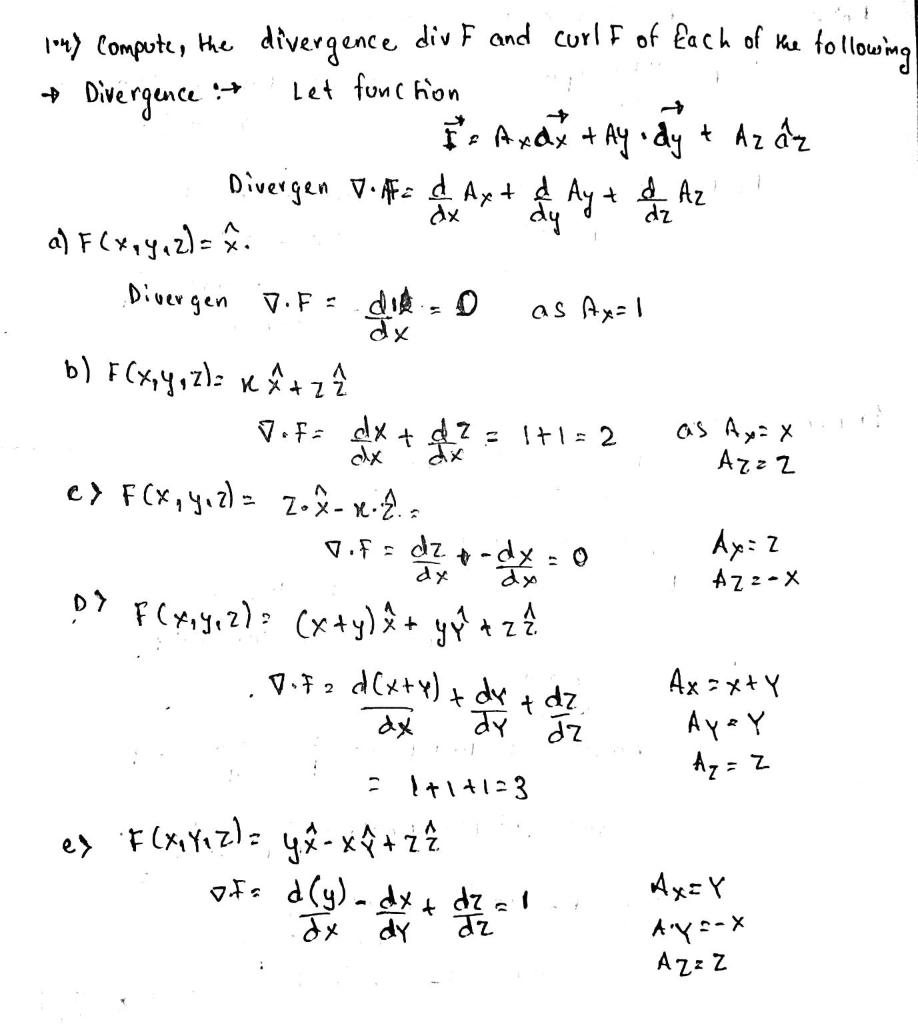 1.4) Compute, the divergence div F and curl F of Each of the following
→ Divergence :→ Let function
F⃗ = Ax dx⃗ + Ay · dy⃗ + Az âz
Divergen ∇·AF = d/dx Ax + d/dy Ay + d/dz Az
a) F(x,y,z) = x̂.
Divergen ∇.F = d1/dx = 0 as Ax=1
b) F(x,y,z) = x x̂ + z ẑ
∇.F = dx/dx + dz/dx = 1+1 = 2 as Ax = x
Az = z
c) F(x,y,z) = z.x̂ - x.ẑ. =
∇.F = dz/dx + -dx/dx = 0 Ax = z
Az = -x
D) F(x,y,z) = (x+y) x̂ + yŷ + z ẑ
∇.F = d(x+y)/dx + dy/dy + dz/dz Ax = x+y
Ay = y
Az = z
= 1+1+1=3
e) F(x,y,z) = yx̂ - xŷ + z ẑ
∇F = d(y)/dx - dx/dy + dz/dz = 1 Ax = y
A.y = -x
Az = z